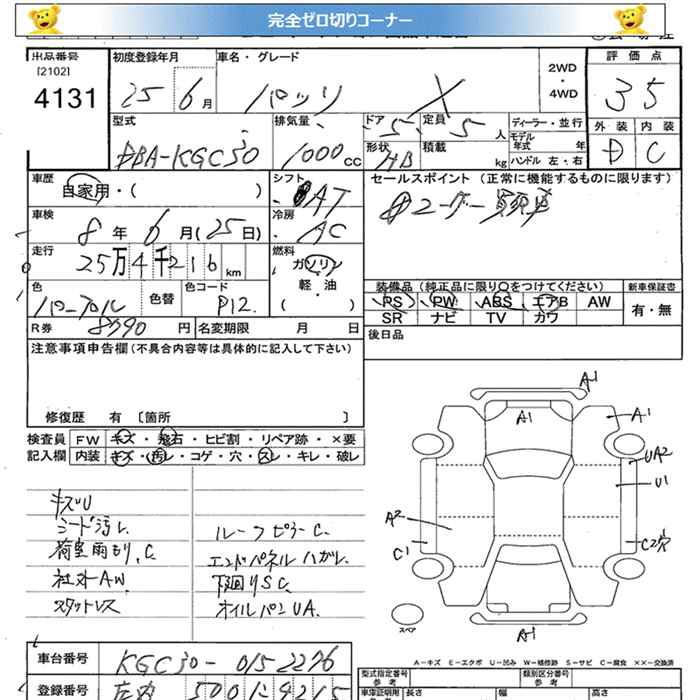 完全ゼロ切りコーナー
出品番号 初度登録年月 車名・グレード 2WD・4WD 評価点
[2102]
4131 25 6月 パッソ X 35
型式 排気量 ドア 5 定員 5人 ディーラー・並行 外装 内装
モデル年式 年
DBA-KGC30 1000cc 形状 HB 積載 kg ハンドル 左・右 D C
車歴 シフト セールスポイント (正常に機能するものに限ります)
自家用・( ) AT
車検 冷房
8年 6月(25日) AC
走行 燃料
25万4千216km ガソリン・軽・油 ( )
装備品(純正品に限り○をつけてください) 新車保証書
色 色替 色コード PS PW ABS エアB AW 有・無
パープル P12 SR ナビ TV カワ
R券 8590円 名変期限 月 日 後日品
注意事項申告欄(不具合内容等は具体的に記入して下さい)
修復歴 有 [箇所 ]
検査員 FW キズ・飛石・ヒビ割・リペア跡・×要
記入欄 内装 キズ・汚レ・コゲ・穴・スレ・キレ・破レ
キズU
シード汚レ
荷室雨もり、C
社外AW
スタットレス
ルーフピラーC
エンドパネルハガレ
下廻りSC
オイルパンUA
A1
A1
A1
UA2
U1
A2
C1
C2穴
スペア
A1
A-キズ E-エクボ U-凹み W-補修跡 S-サビ C-腐食 ××-交換済
車台番号 KGC30-0152276
型式指定番号 類別区分番号
参考 参考
登録番号
長さ 幅 高さ